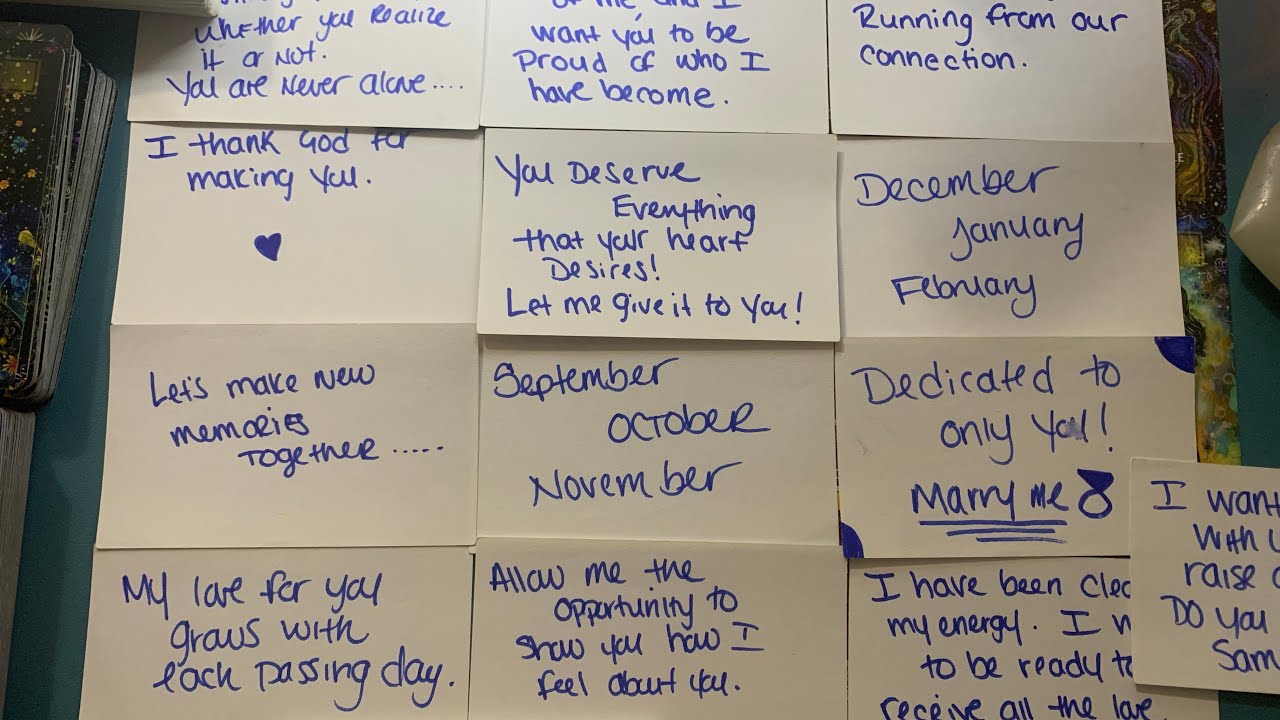 whether you Realize
it or Not.
You are Never alone....
of me, and I
want you to be
Proud of who I
have become.
Running from our
connection.
I thank God for
making you.
You Deserve
Everything
that your heart
Desires!
Let me give it to you!
December
January
February
Let's make New
memories
Together.....
September
October
November
Dedicated to
only you!
Marry me
My love for you
grows with
Each passing day.
Allow me the
opportunity to
show you how I
feel about you.
I have been
my energy. I
to be ready
receive all the love
I want
with
raise
Do you